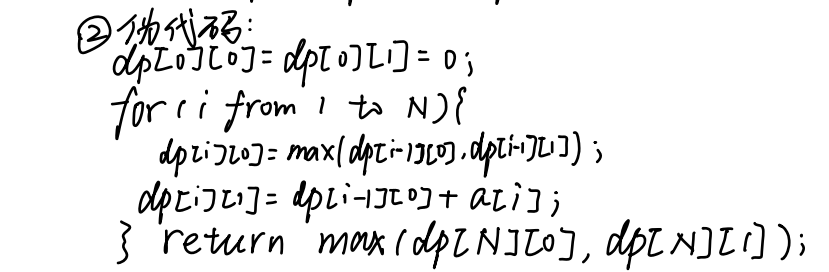 ②伪代码:
dp[0][0]=dp[0][1]=0;
for(i from 1 to N){
dp[i][0]=max(dp[i-1][0],dp[i-1][1]);
dp[i][1]=dp[i-1][0]+a[i];
} return max(dp[N][0],dp[N][1]);